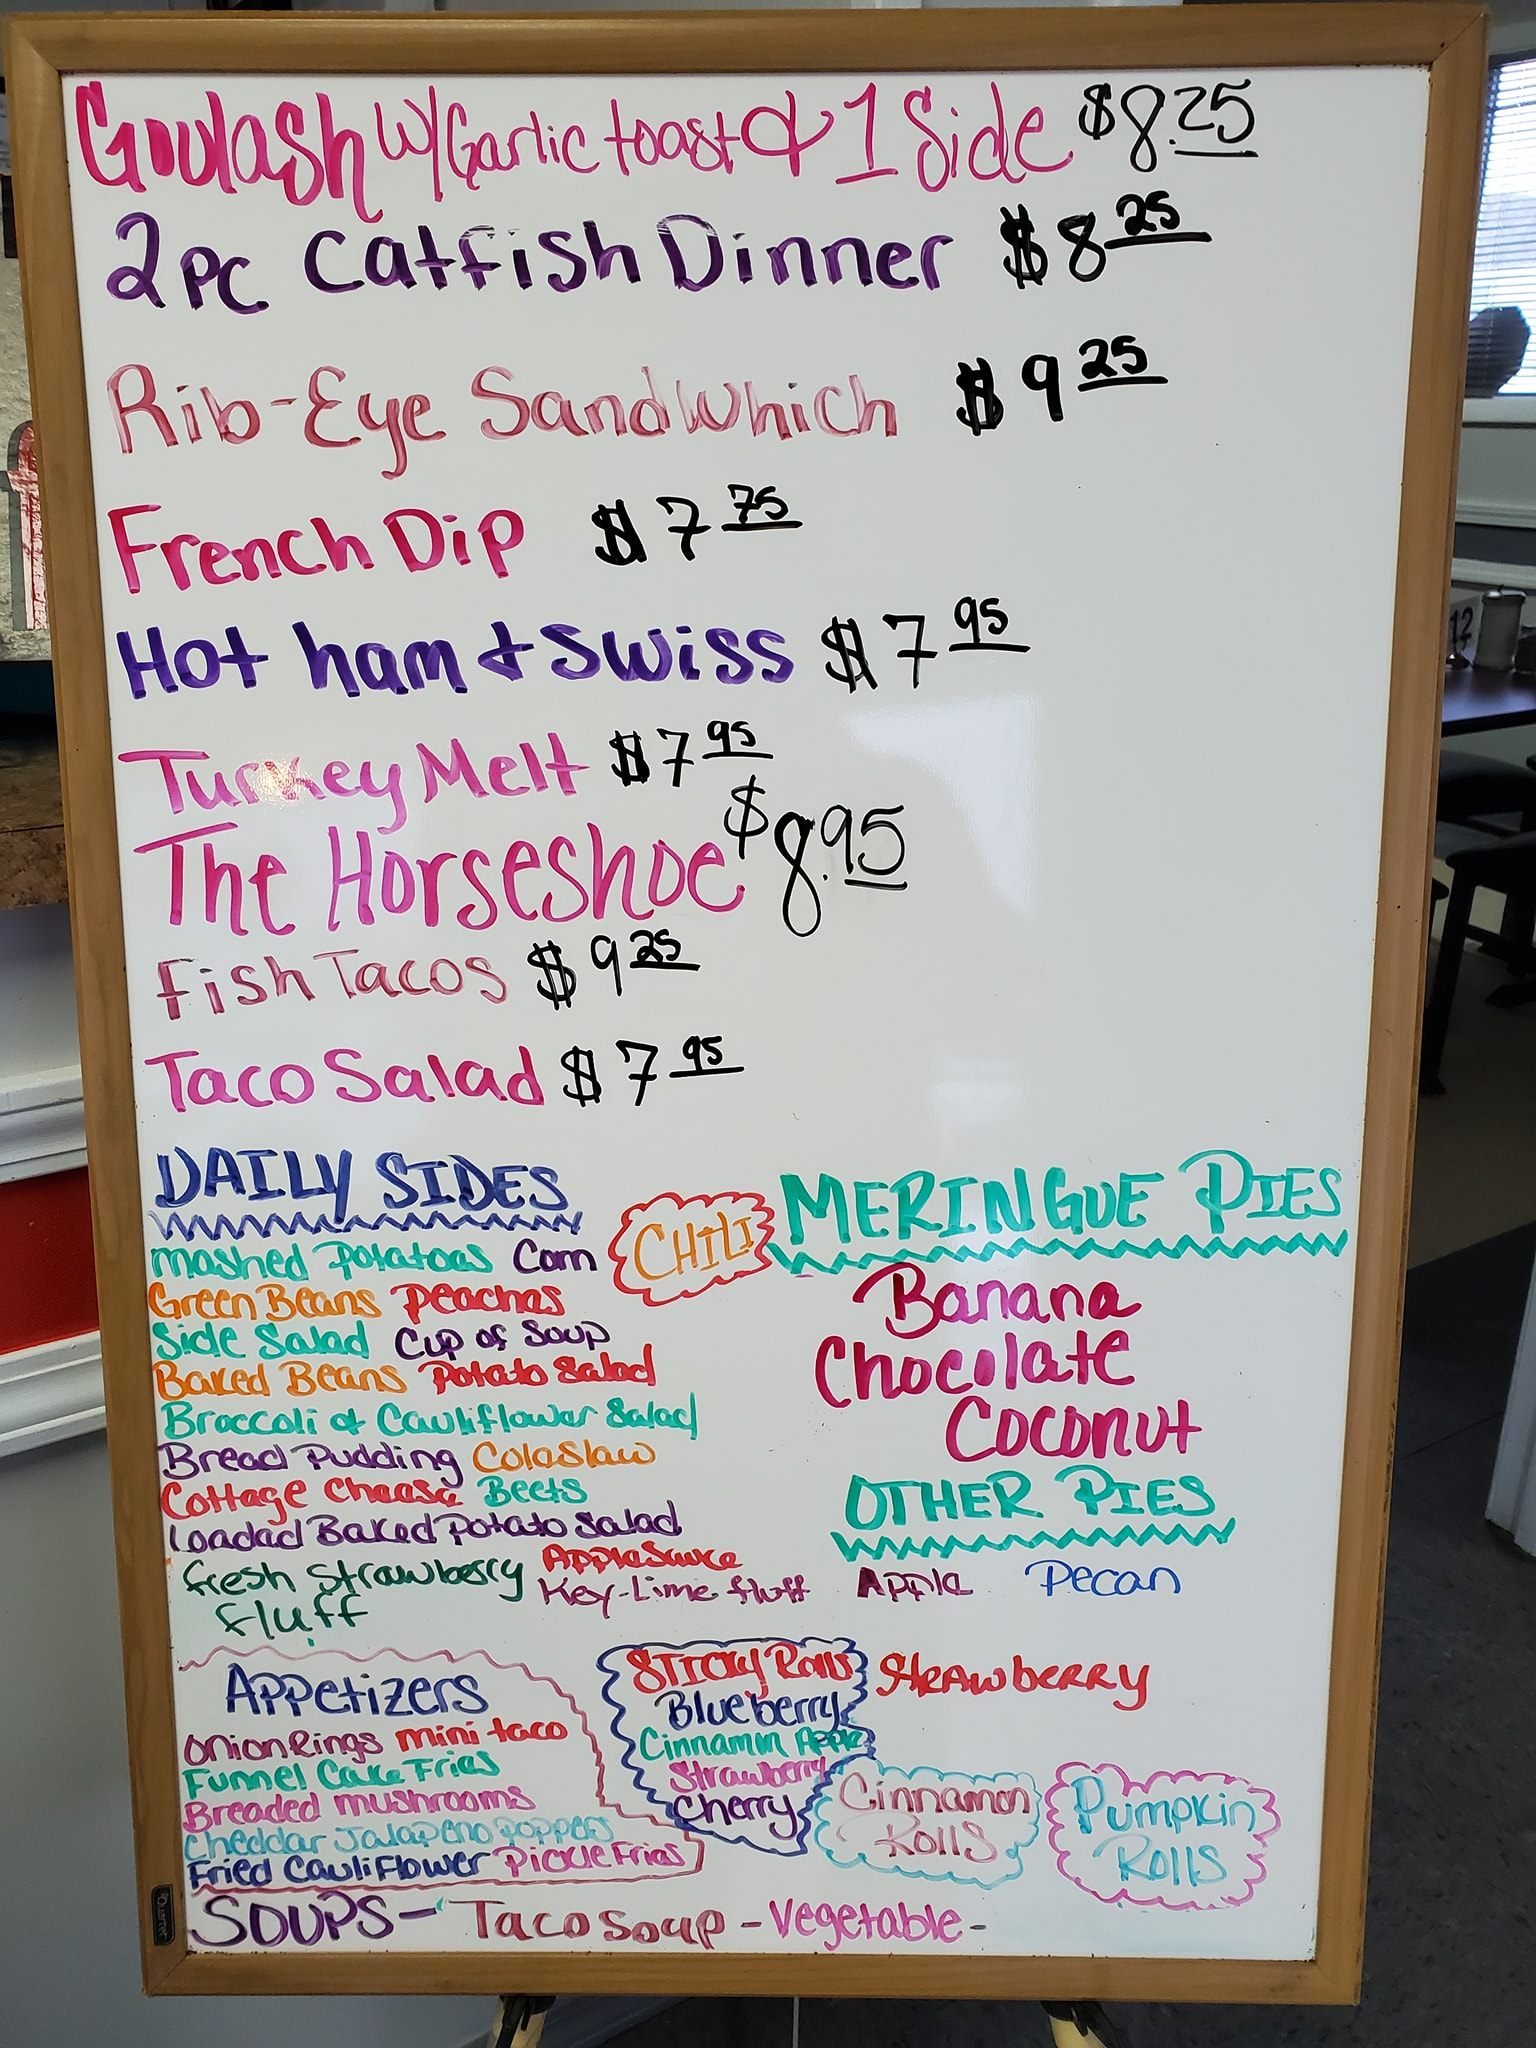 Goulash w/Garlic toast & 1 Side $8.25
2pc Catfish Dinner $8 25
Rib-Eye Sandwhich $9 25
French Dip $7 75
Hot ham & Swiss $7 95
Turkey Melt $7 95
The Horseshoe $8.95
Fish Tacos $9 25
Taco Salad $7 95
DAILY SIDES
mashed potatoes Corn
Green Beans peaches
Side Salad Cup of Soup
Baked Beans Potato Salad
Broccoli & Cauliflower Salad
Bread Pudding Coleslaw
Cottage Cheese Beets
Loaded Baked Potato Salad
fresh Strawberry fluff
AppleSauce
Key-Lime fluff
CHILI
MERINGUE PIES
Banana
Chocolate
Coconut
OTHER PIES
Apple Pecan
STRAWberry
Appetizers
Onion Rings mini taco
Funnel Cake Fries
Breaded mushrooms
Cheddar Jalapeno poppers
Fried Cauliflower Pickle Fries
STICKY Rolls
Blueberry
Cinnamin Apple
Strawberry
Cherry
Cinnamon
ROLLS
Pumpkin
ROLLS
SOUPS- Taco Soup - Vegetable -
Quartet
12